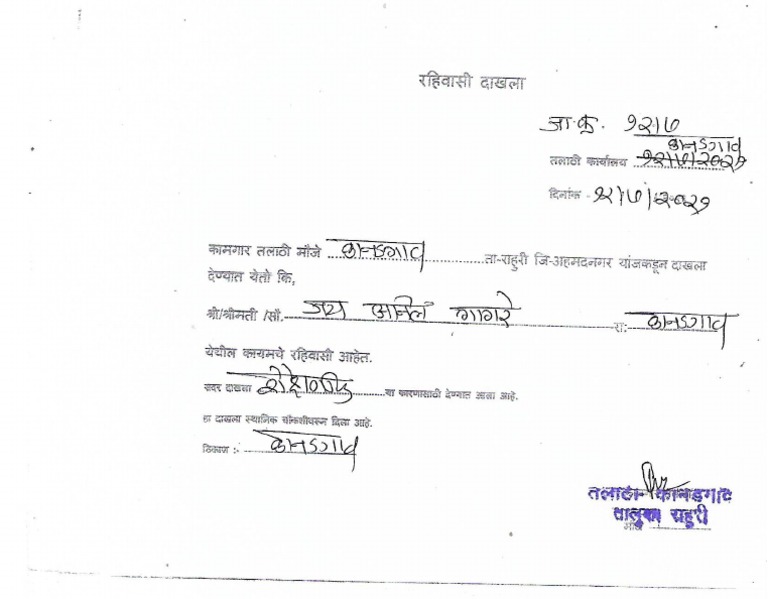 रहिवासी दाखला
जा.क्र. १२१७
कानडगाव
तलाठी कार्यालय १२/७/२०२१
दिनांक - १२/७/२०२१
कामगार तलाठी मौजे कानडगाव ता-राहुरी जि-अहमदनगर यांजकडून दाखला
देण्यात येतो कि,
श्री/श्रीमती /सौ. जय अनिल गागरे रा: कानडगाव
येथील कायमचे रहिवासी आहेत.
सदर दाखला शैक्षणिक या कारणासाठी देण्यात आला आहे.
हा दाखला स्थानिक चौकशीवरून दिला आहे.
ठिकाण :- कानडगाव
तलाठी- कानडगाव
तालुका राहुरी